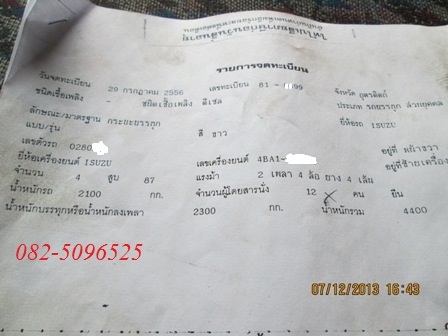 รายการจดทะเบียน
วันจดทะเบียน 29 กรกฎาคม 2556 เลขทะเบียน 81 - 99 จังหวัด อุตรดิตถ์
ชนิดเชื้อเพลิง - ชนิดเชื้อเพลิง ดีเซล ประเภท รถบรรทุก ส่วนบุคคล
ลักษณะ/มาตรฐาน กระบะบรรทุก ยี่ห้อรถ ISUZU
แบบ/รุ่น สี ขาว
เลขตัวรถ 0280 อยู่ที่ หน้าขวา
ยี่ห้อเครื่องยนต์ ISUZU เลขเครื่องยนต์ 4BA1- อยู่ที่ ซ้ายเครื่อง
จำนวน 4 สูบ 87 แรงม้า 2 เพลา 4 ล้อ ยาง 4 เส้น
น้ำหนักรถ 2100 กก. จำนวนผู้โดยสารนั่ง 12 คน ยืน
น้ำหนักบรรทุกหรือน้ำหนักลงเพลา 2300 กก. น้ำหนักรวม 4400
082-5096525
07/12/2013 16:43